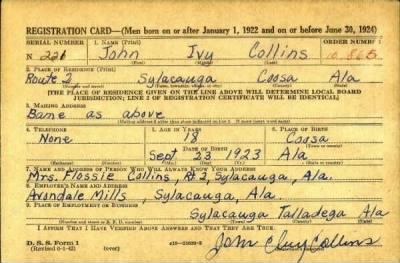 REGISTRATION CARD—(Men born on or after January 1, 1922 and on or before June 30, 1924)
SERIAL NUMBER 1. NAME (Print) ORDER NUMBER
N 226 John Ivy Collins 10,865
(First) (Middle) (Last)
2. PLACE OF RESIDENCE (Print)
Route 2 Sylacauga Coosa Ala
(Number and street) (Town, township, village, or city) (County) (State)
[THE PLACE OF RESIDENCE GIVEN ON THE LINE ABOVE WILL DETERMINE LOCAL BOARD
JURISDICTION; LINE 2 OF REGISTRATION CERTIFICATE WILL BE IDENTICAL]
3. MAILING ADDRESS
Same as above
[Mailing address if other than place indicated on line 2. If same insert word same]
4. TELEPHONE 5. AGE IN YEARS 6. PLACE OF BIRTH
None 18 Coosa
DATE OF BIRTH (Town or county)
Sept 23 1923 Ala
(Exchange) (Number) (Mo.) (Day) (Yr.) (State or country)
7. NAME AND ADDRESS OF PERSON WHO WILL ALWAYS KNOW YOUR ADDRESS
Mrs. Flossie Collins, Rt 2, Sylacauga, Ala.
8. EMPLOYER'S NAME AND ADDRESS
Avondale Mills, Sylacauga, Ala.
9. PLACE OF EMPLOYMENT OR BUSINESS
Sylacauga Talladega Ala
(Number and street or R. F. D. number) (Town) (County) (State)
I AFFIRM THAT I HAVE VERIFIED ABOVE ANSWERS AND THAT THEY ARE TRUE.
D. S. S. Form 1
(Revised 6-1-42) (over)
John Ivy Collins